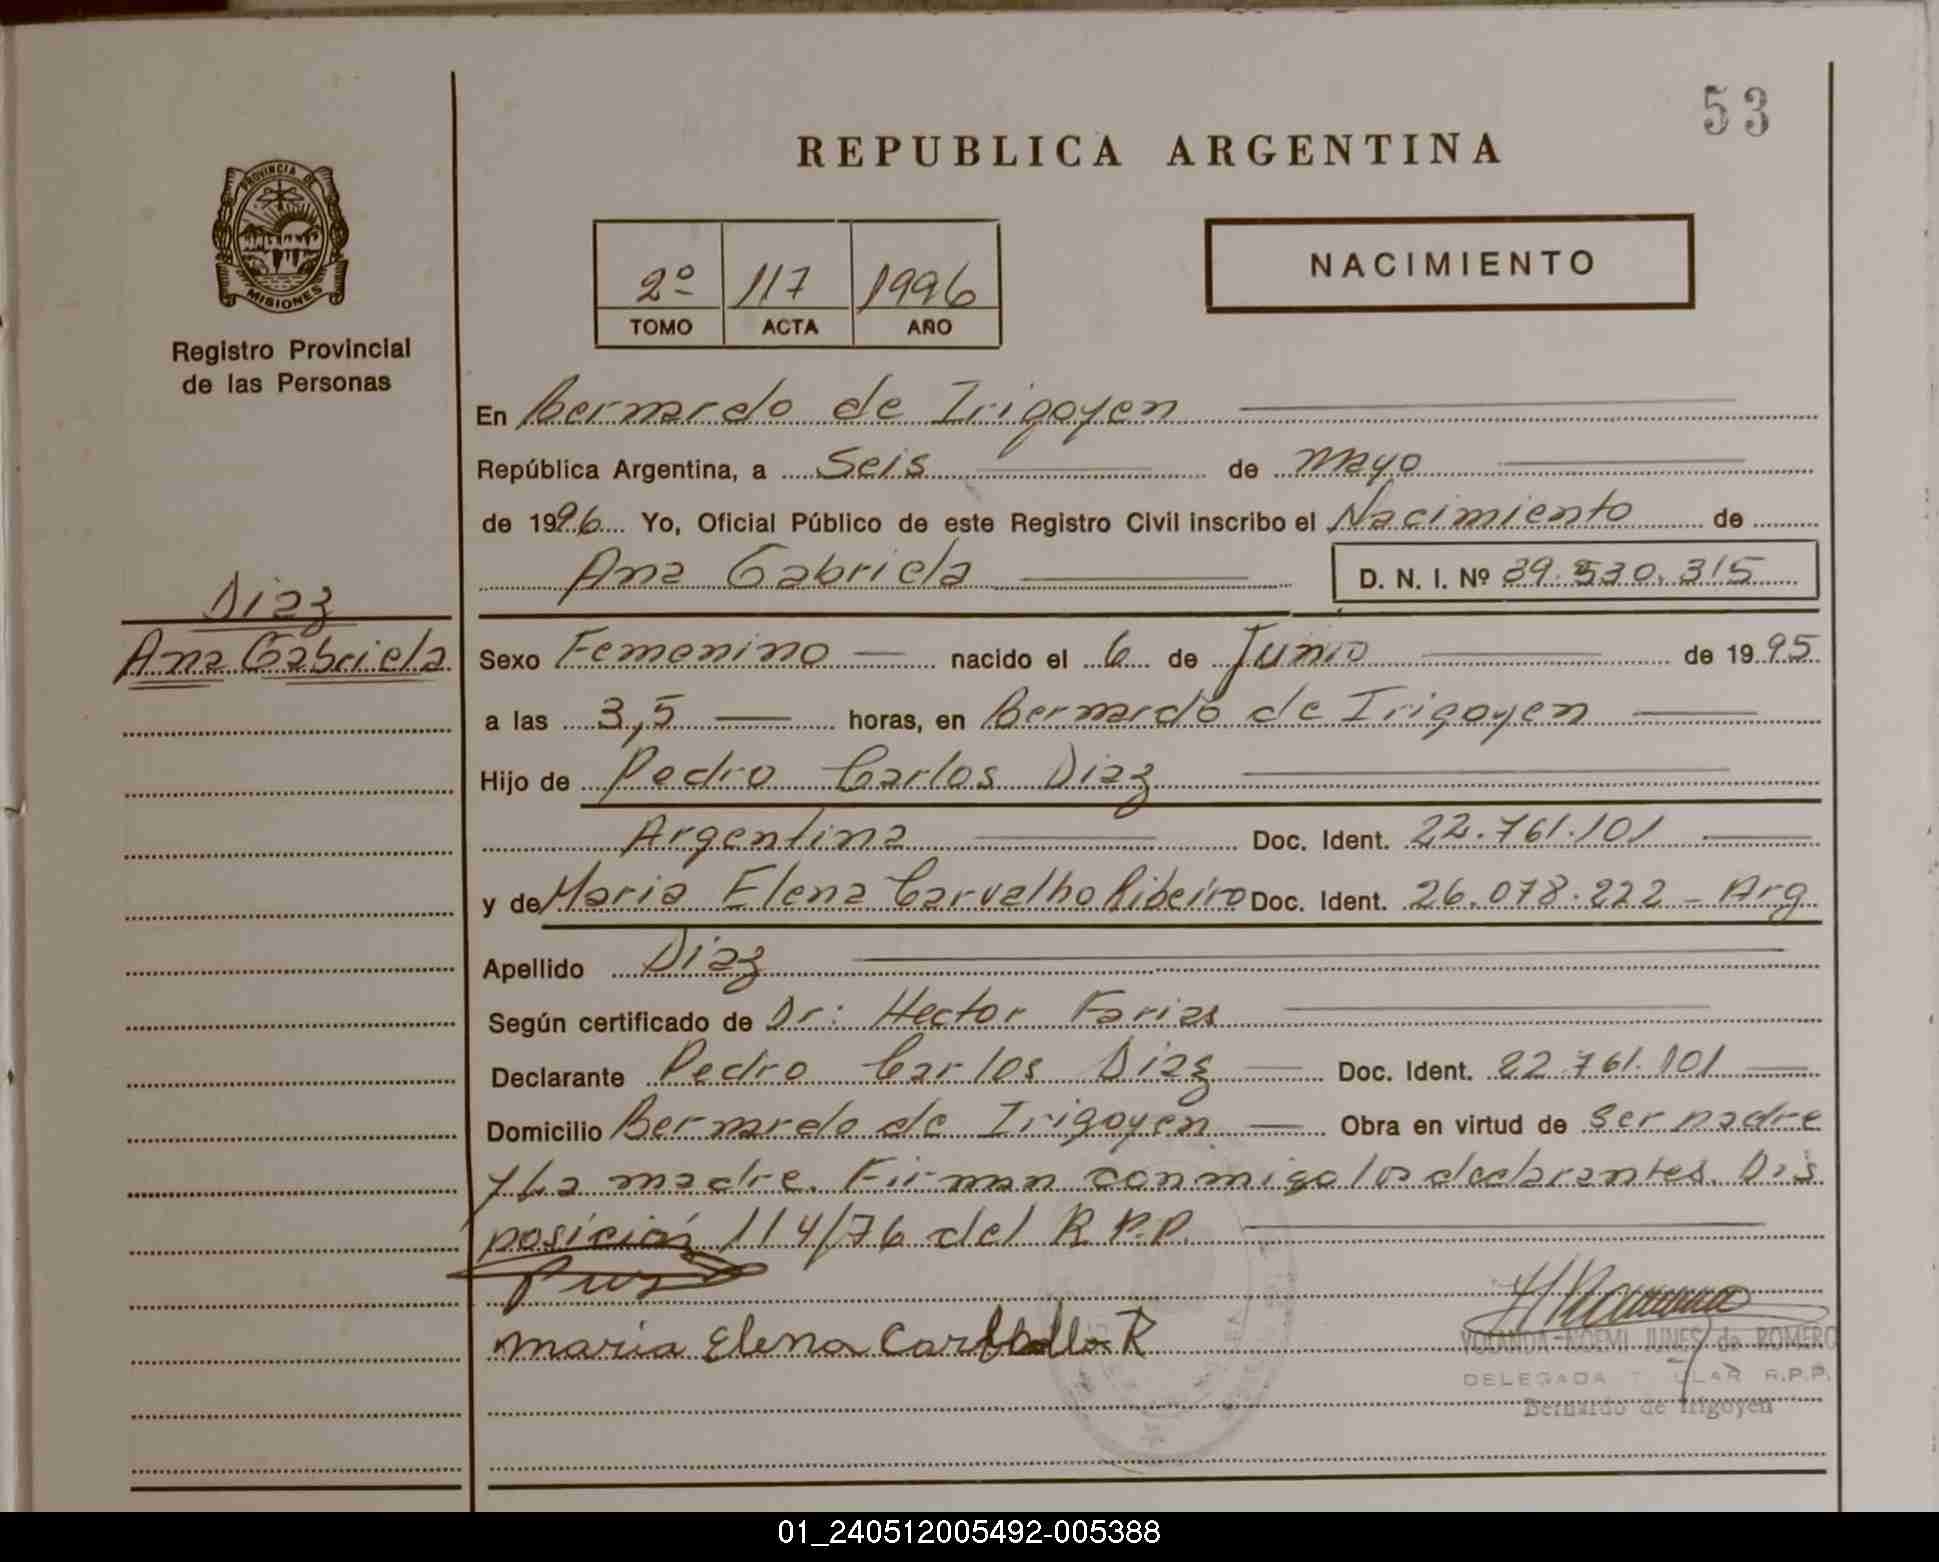 53
REPUBLICA ARGENTINA
PROVINCIA DE
MISIONES
Registro Provincial
de las Personas
2º 117 1996
TOMO ACTA AÑO
NACIMIENTO
En Bernardo de Irigoyen
República Argentina, a Seis de mayo
de 1996 Yo, Oficial Público de este Registro Civil inscribo el Nacimiento de
Ana Gabriela D. N. I. Nº 39.530.315
Diaz
Ana Gabriela
Sexo Femenino nacido el 6 de Junio de 1995
a las 3,5 horas, en Bernardo de Irigoyen
Hijo de Pedro Carlos Diaz
Argentina Doc. Ident. 22.761.101
y de Maria Elena Carvalho Ribeiro Doc. Ident. 26.078.222 - Arg
Apellido Diaz
Según certificado de Dr: Hector Farias
Declarante Pedro Carlos Diaz Doc. Ident. 22.761.101
Domicilio Bernardo de Irigoyen Obra en virtud de ser padre
y La madre. Firman conmigo los declarantes. Dis
posición 114/76 del R.P.P.
maria Elena R
YOLANDA NOEMI JUNES de ROMERO
DELEGADA R.P.P.
Bernardo de Irigoyen
01_240512005492-005388